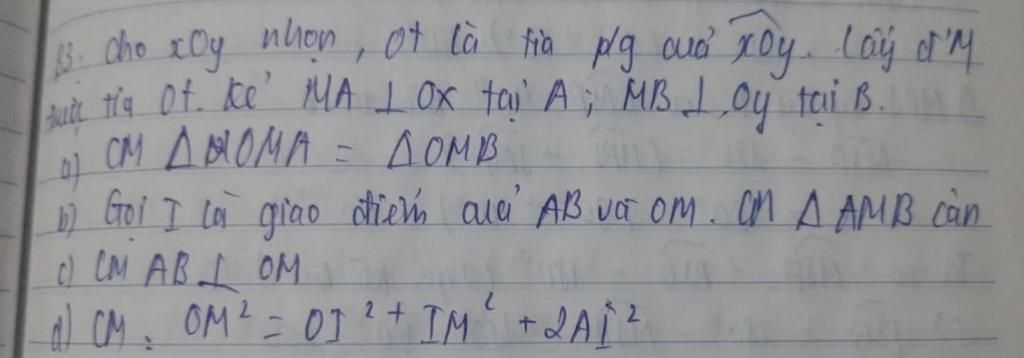 B3. Cho xOy nhọn, Ot là tia p/g của xOy. Lấy đ'M
thuộc tia Ot. Kẻ MA ⊥ Ox tại A; MB ⊥ Oy tại B.
a) CM Δ OMA = Δ OMB
b) Gọi I là giao điểm của AB và OM. CM Δ AMB cân
c) CM AB ⊥ OM
d) CM: OM² = OI² + IM² + 2AI²